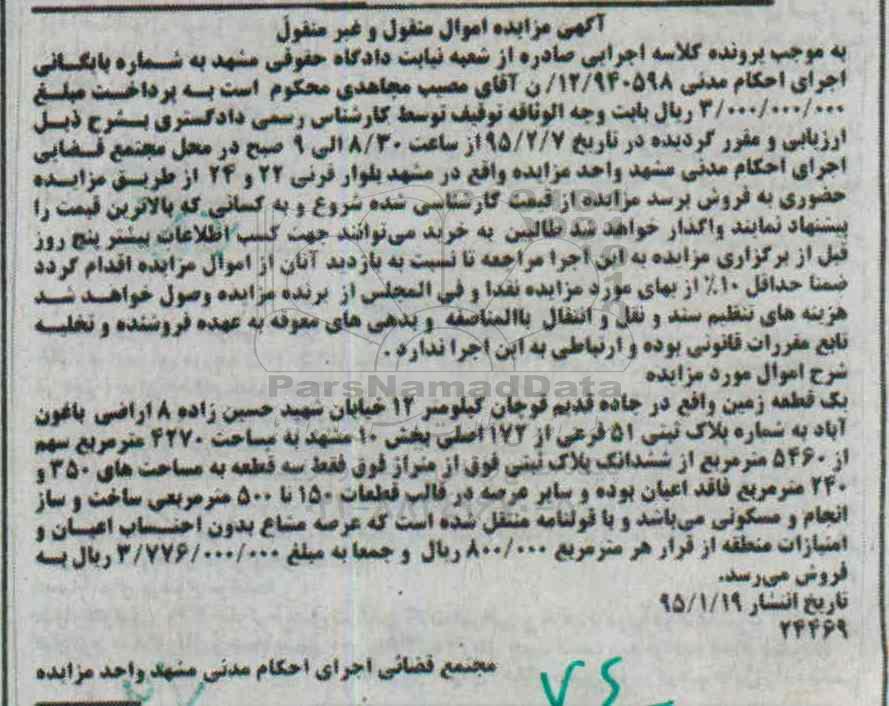 آگهی مزایده اموال منقول و غیر منقول
به موجب پرونده کلاسه اجرایی صادره از شعبه نیابت دادگاه حقوقی مشهد به شماره بایگانی
اجرای احکام مدنی ۱۲/۹۴۰۵۹۸/ن آقای مصیب مجاهدی محکوم است به پرداخت مبلغ
۳/۰۰۰/۰۰۰/۰۰۰ ریال بابت وجه الوثاقه توقیف توسط کارشناس رسمی دادگستری بشرح ذیل
ارزیابی و مقرر گردیده در تاریخ ۹۵/۲/۷ از ساعت ۸/۳۰ الی ۹ صبح در محل مجتمع قضایی
اجرای احکام مدنی مشهد واحد مزایده واقع در مشهد بلوار قرنی ۲۲ و ۲۴ از طریق مزایده
حضوری به فروش برسد مزایده از قیمت کارشناسی شده شروع و به کسانی که بالاترین قیمت را
پیشنهاد نمایند واگذار خواهد شد طالبین به خرید می‌توانند جهت کسب اطلاعات بیشتر پنج روز
قبل از برگزاری مزایده به این اجرا مراجعه تا نسبت به بازدید آنان از اموال مزایده اقدام گردد
ضمنا حداقل ۱۰٪ از بهای مورد مزایده نقدا و فی المجلس از برنده مزایده وصول خواهد شد
هزینه های تنظیم سند و نقل و انتقال باالمناصفه و بدهی های معوقه به عهده فروشنده و تخلیه
تابع مقررات قانونی بوده و ارتباطی به این اجرا ندارد.
شرح اموال مورد مزایده
ParsNamadData
یک قطعه زمین واقع در جاده قدیم قوچان کیلومتر ۱۲ خیابان شهید حسین زاده ۸ اراضی باغون
آباد به شماره پلاک ثبتی ۵۱ فرعی از ۱۷۲ اصلی بخش ۱۰ مشهد به مساحت ۴۲۷۰ مترمربع سهم
از ۵۴۶۰ مترمربع از ششدانک پلاک ثبتی فوق از متراژ فوق فقط سه قطعه به مساحت های ۳۵۰ و
۲۴۰ مترمربع فاقد اعیان بوده و سایر عرصه در قالب قطعات ۱۵۰ تا ۵۰۰ مترمربعی ساخت و ساز
انجام و مسکونی می‌باشد و با قولنامه منتقل شده است که عرصه مشاع بدون احتساب اعیان و
امتیازات منطقه از قرار هر مترمربع ۸۰۰/۰۰۰ ریال و جمعا به مبلغ ۳/۷۷۶/۰۰۰/۰۰۰ ریال به
فروش می‌رسد.
تاریخ انتشار ۹۵/۱/۱۹
۲۴۴۶۹
مجتمع قضائی اجرای احکام مدنی مشهد واحد مزایده